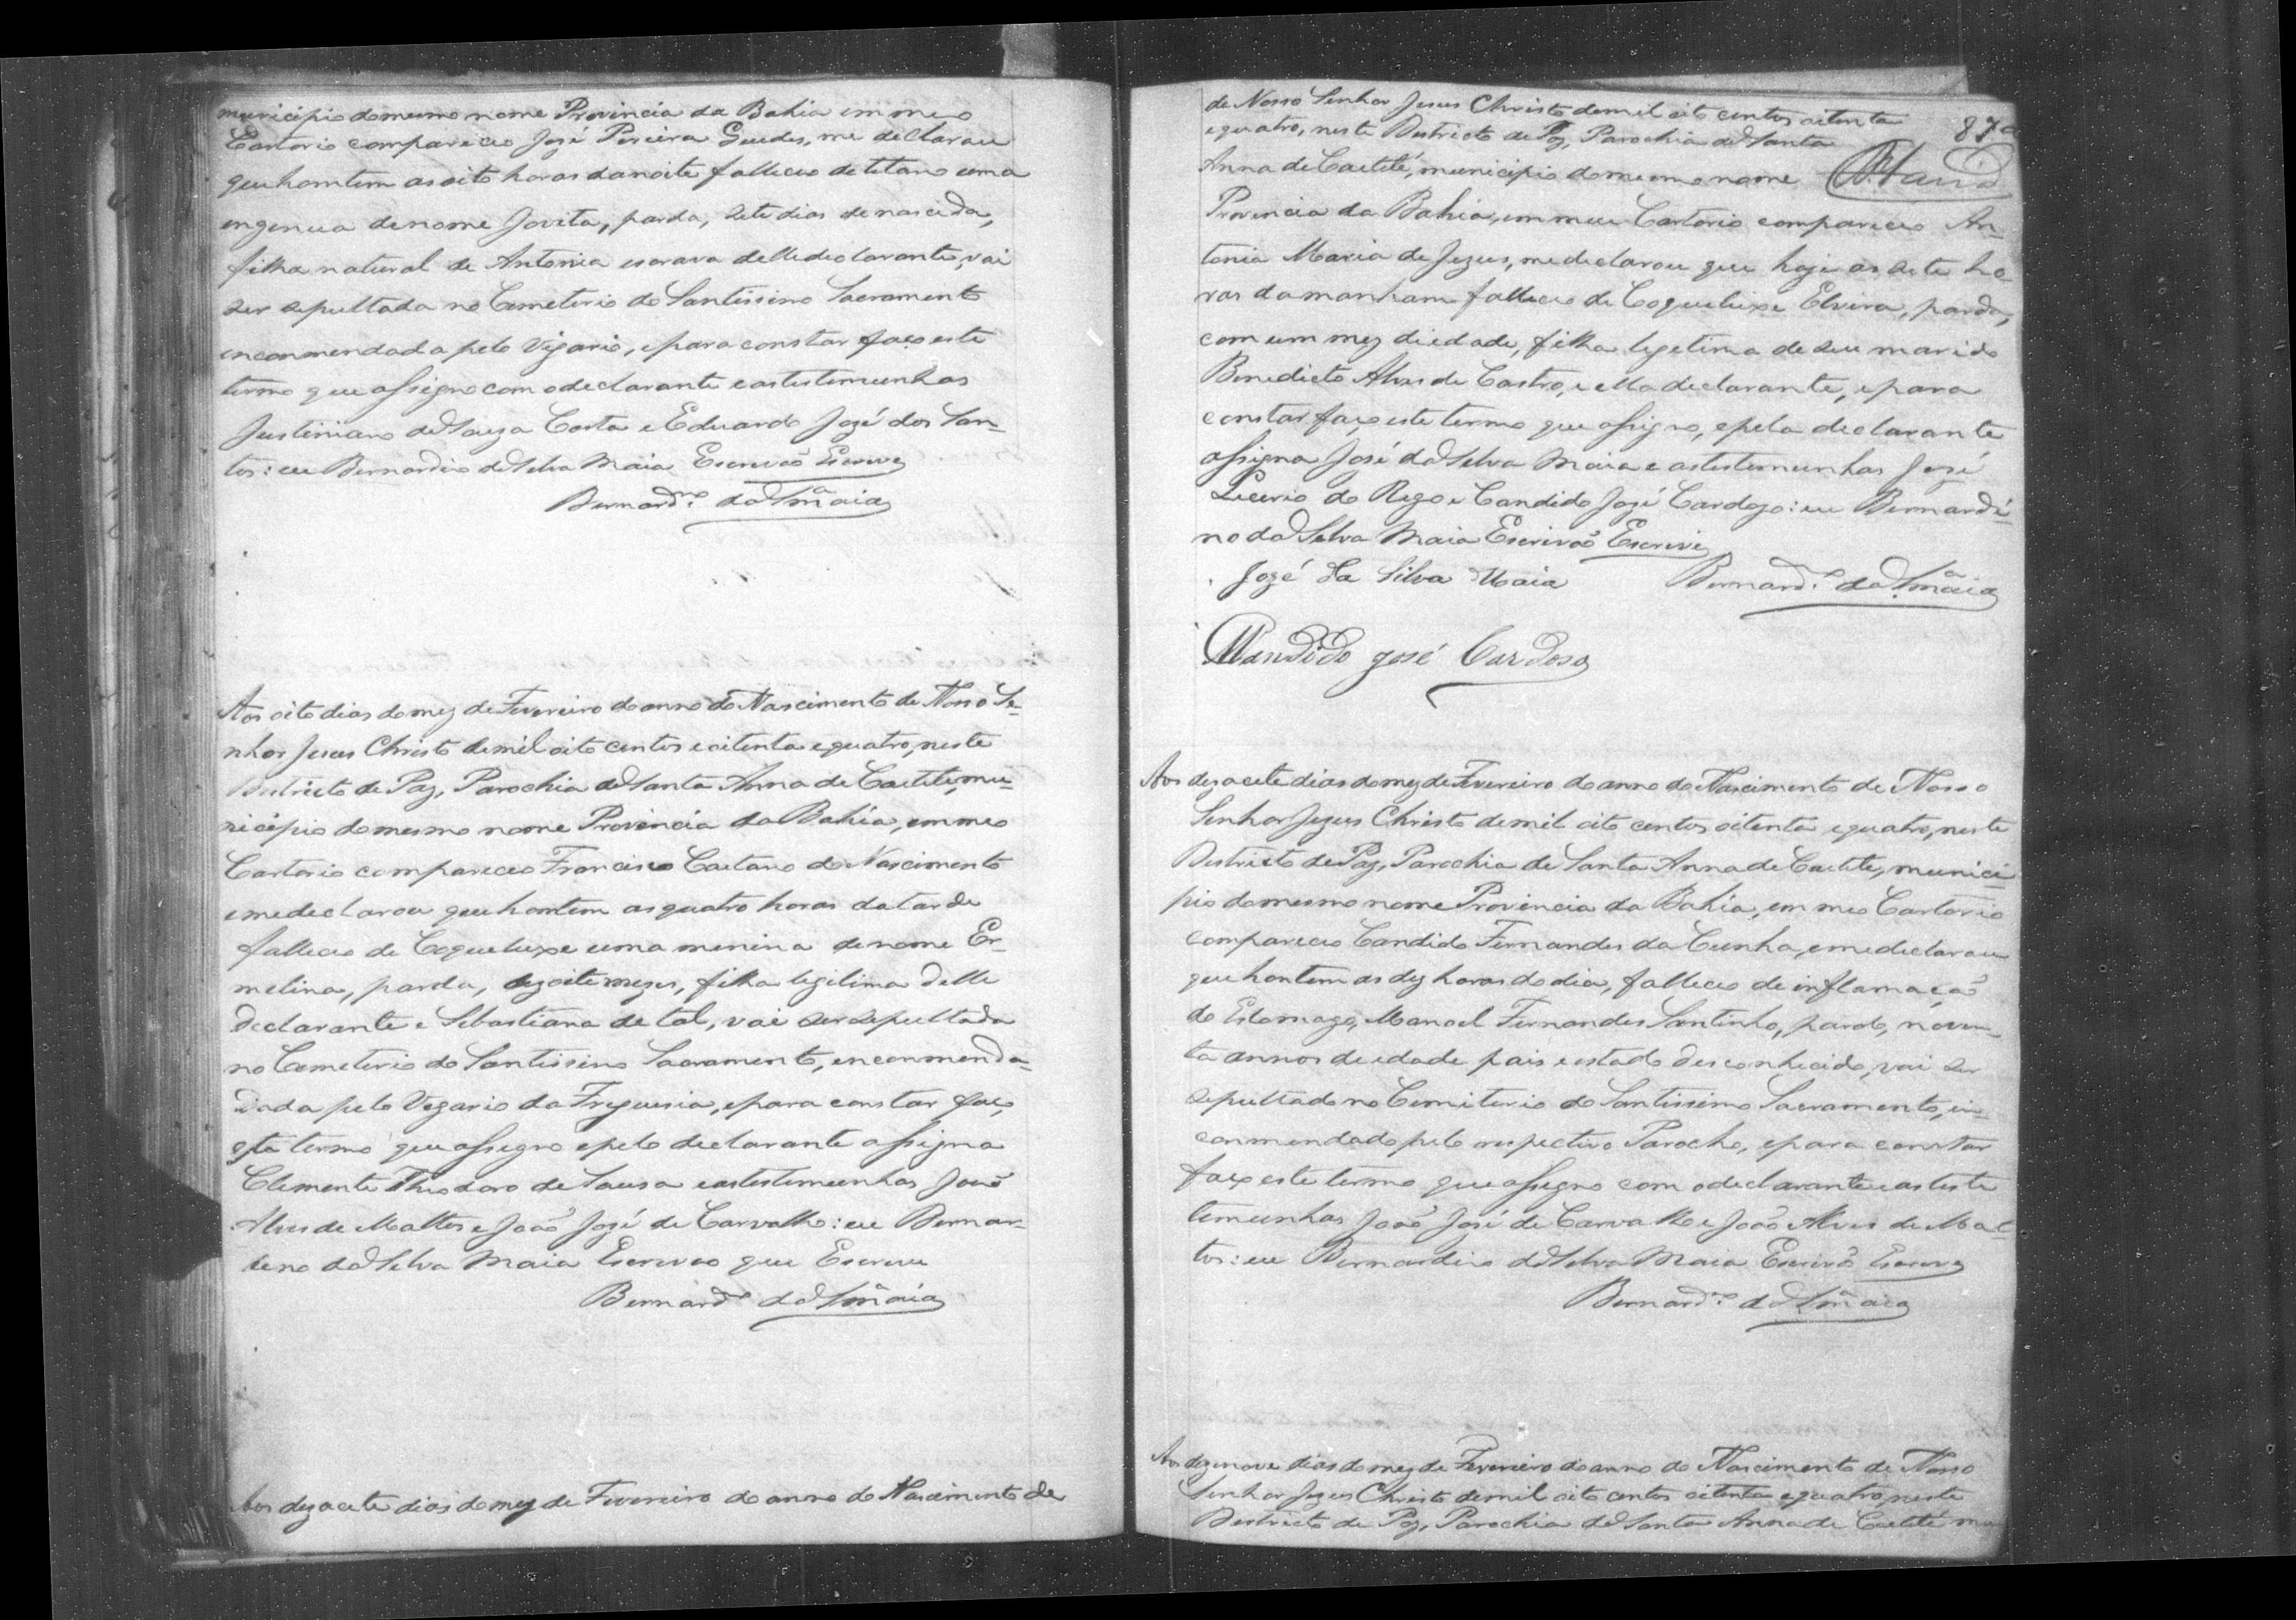 municipio do mesmo nome Provincia da Bahia em meo
Cartorio compareceo José Pereira Guedes, me declarou
que hontem as oito horas da noite falleceo de tetano uma
ingenua de nome Jovita, parda, sete dias de nascida,
filha natural de Antonia escrava delle declarante, vai
ser sepultada no Cemeterio do Santissimo Sacramento
encommendada pelo Vigario, e para constar faço este
termo que assigno com o declarante e as testemunhas
Justiniano de Souza Costa e Eduardo José dos San-
tos: eu Bernardino da Silva Maia Escrivaõ Escrevy
Bernard.no da S.ª Maia
Aos oito dias do mez de Fevereiro do anno do Nascimento de Nosso Se-
nhor Jesus Christo de mil oito centos e oitenta e quatro, neste
Districto de Paz, Parochia de Santa Anna de Caetité, mu-
nicipio do mesmo nome Provincia da Bahia, em meo
Cartorio compareceo Francisco Caetano do Nascimento
e me declarou que hontem as quatro horas da tarde
falleceo de Coqueluxe uma menina de nome Er-
melina, parda, dezoito mezes, filha legitima delle
declarante e Sebastiana de tal, vai ser sepultada
no Cemeterio do Santissimo Sacramento, encommenda-
dada pelo Vegario da Freguesia, e para constar faço
este termo que assigno e pelo declarante assigna
Clemente Theodoro de Sousa e as testemunhas João
Alves de Mattos e João José de Carvalho: eu Bernar-
deno da Silva Maia Escrivao que Escrevi
Bernard.no da S.ª Maia
Aos dezacete dias do mez de Fevereiro do anno do Nascimento de
de Nosso Senhor Jesus Christo de mil oito centos oitenta
e quatro, neste Districto de Paz, Parochia de Santa
87
Anna de Caetité, municipio do mesmo nome
Provincia da Bahia, em meu Cartorio compareceo An-
tonia Maria de Jezus, me declarou que hoje as sete ho-
ras da manham falleceo de Coqueluxe Elvira, parda,
com um mez de edade, filha legetima de seu marido
Benedicto Alves de Castro, e ella declarante, e para
constar faço este termo que assigno, e pela declarante
assigna José da Silva Maia e as testemunhas José
Licerio do Rego e Candido José Cardozo: eu Bernardi-
no da Silva Maia Escrivaõ Escrevi
Jozé da Silva Maia Bernard.no da S.ª Maia
Candido José Cardoso
Aos dezacete dias do mez de Fevereiro do anno do Nascimento de Nosso
Senhor Jezus Christo de mil oito centos oitenta e quatro, neste
Districto de Paz, Parochia de Santa Anna de Caetite, munici-
pio do mesmo nome Provincia da Bahia, em meo Cartorio
compareceo Candido Fernandes da Cunha, e me declarou
que hontem as dez horas do dia, falleceo de inflamação
do Estomago, Manoel Fernandes Santinho, pardo, noven-
ta annos de edade pais e estado desconhecido, vai ser
sepultado no Cemiterio do Santissimo Sacramento, in-
commendado pelo respectivo Parocho, e para constar
faço este termo que assigno com o declarante e as teste
temunhas João José de Carvalho e João Alves de Mat-
tos: eu Bernardino da Silva Maia Escrivão Escrevy
Bernard.no da S.ª Maia
Aos dezenove dias do mez de Fevereiro do anno do Nascimento de Nosso
Senhor Jezus Christo de mil oito centos oitenta e quatro, neste
Destricto de Paz, Parochia de Santa Anna de Caetité mu